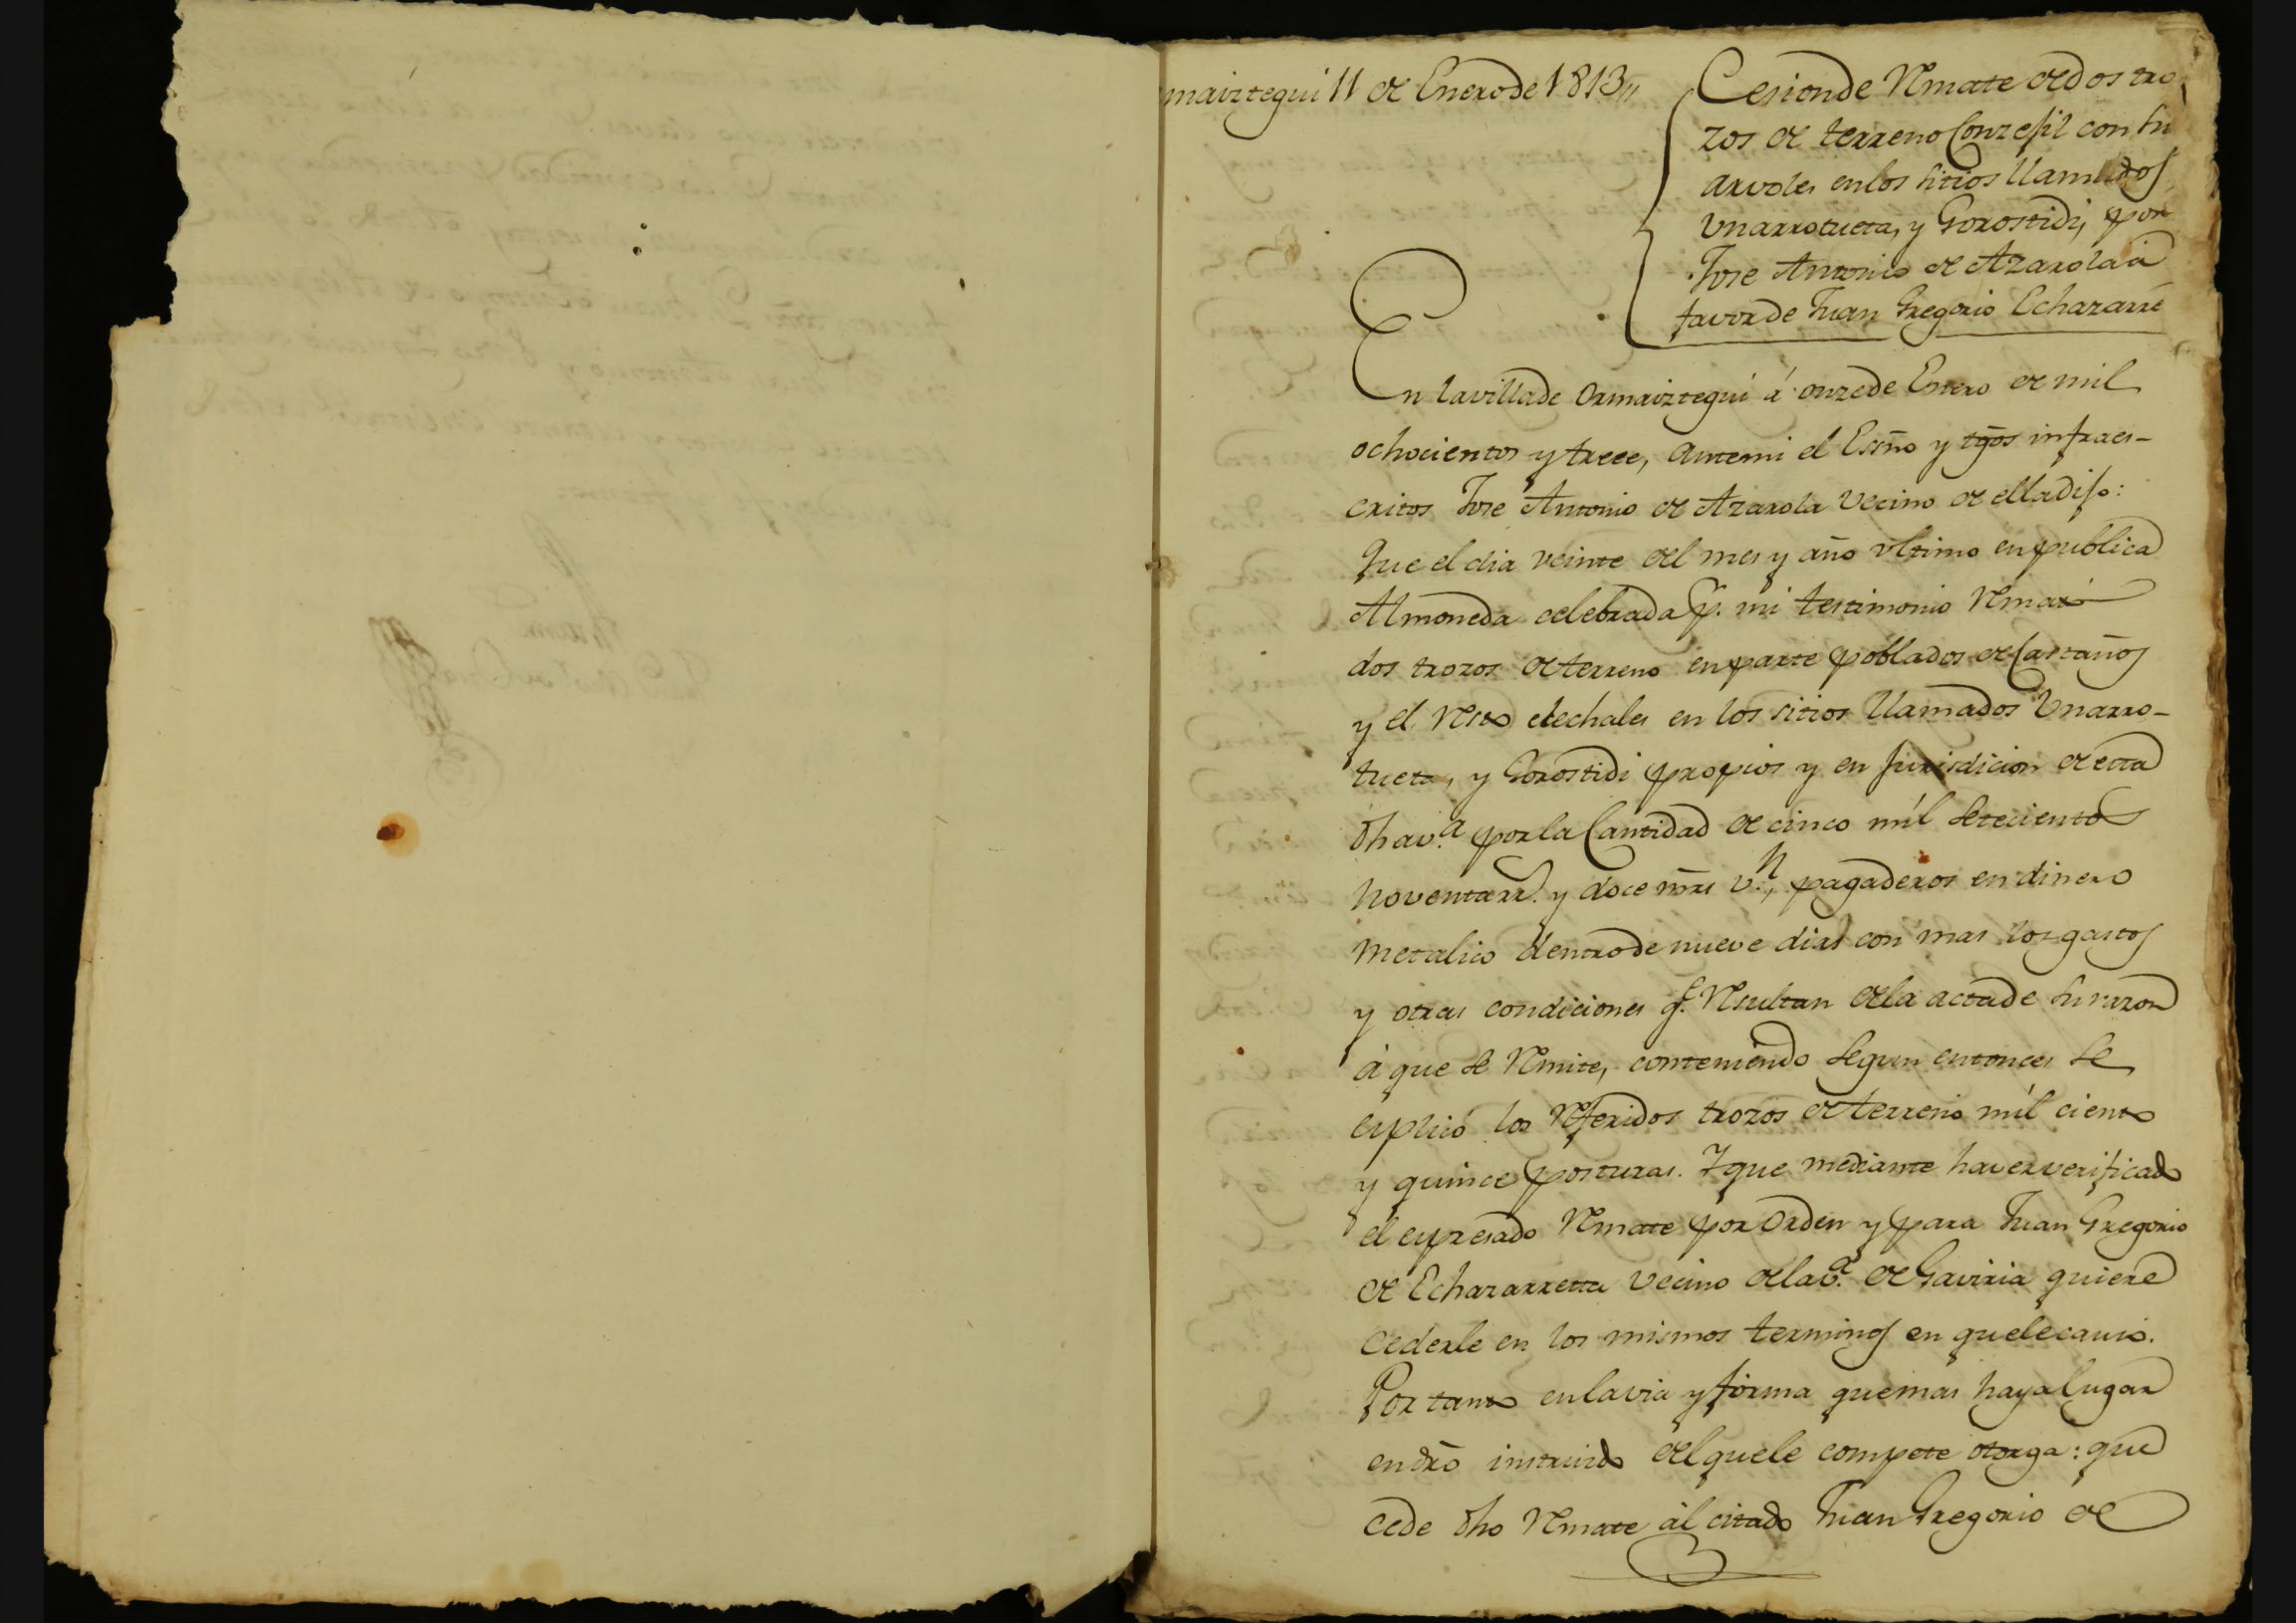 maiztegui 11 de Enero de 1813,,
Cesion de Remate de dos tro
zos de terreno Conzejil con su
arvoles en los sitios llamados
Unarrotueta, y Gorostidi, por
Jose Antonio de Azarola á
favor de Juan Gregorio Echazarre
En la villa de Ormaiztegui á onze de Enero de mil
ochocientos y trece, ante mi el Essno y tgos infraes-
critos Jose Antonio de Azarola vecino de ella dijo:
Que el dia veinte del mes y año ultimo en publica
Almoneda celebrada p. mi testimonio Remató
dos trozos de terreno en parte poblados de Castaños
y el resto elechales en los sitios llamados Unarro-
tueta, y Gorostidi propios y en Jurisdicion de esta
dha v.a por la Cantidad de cinco mil setecientos
noventa rr. y doce mrs v.n, pagaderos en dinero
metalico dentro de nueve dias con mas los gastos
y otras condiciones q.e Resultan de la acta de su razon
á que se Remite, conteniendo segun entonces se
esplicó los Referidos trozos de terreno mil ciento
y quince posturas. Y que mediante haver verificado
el espresado Remate por orden y para Juan Gregorio
de Echazarreta vecino de la v.a de Gaviria quiere
cederle en los mismos terminos en que le causó.
Por tanto en la via y forma que mas haya lugar
en dro instruido del que le compete otorga: que
cede dho Remate al citado Juan Gregorio de